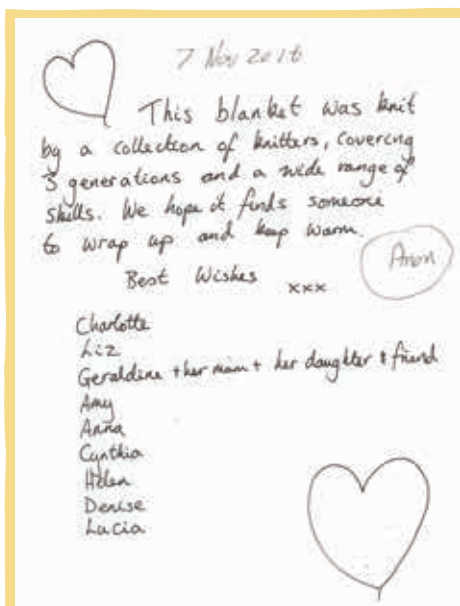 7 Nov 2016
This blanket was knit
by a collection of knitters, covering
3 generations and a wide range of
skills. We hope it finds someone
to wrap up and keep warm.
Anon
Best Wishes xxx
Charlotte
Liz
Geraldine + her mam + her daughter & friend
Amy
Anna
Cynthia
Helen
Denise
Lucia